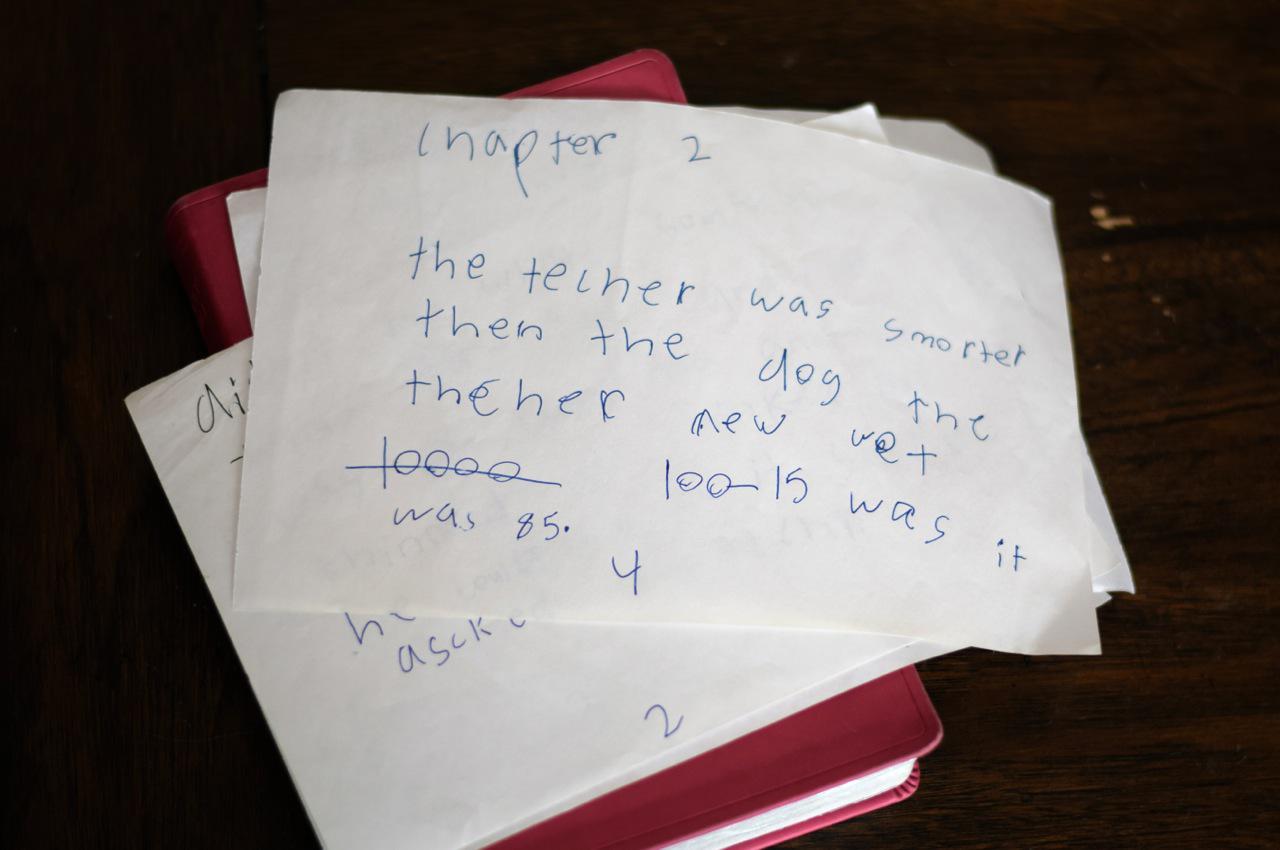 Chapter 2
the techer was smorter
then the dog the
theher new wet
10000 100-15 was it
was 85.
4
di
asck
2